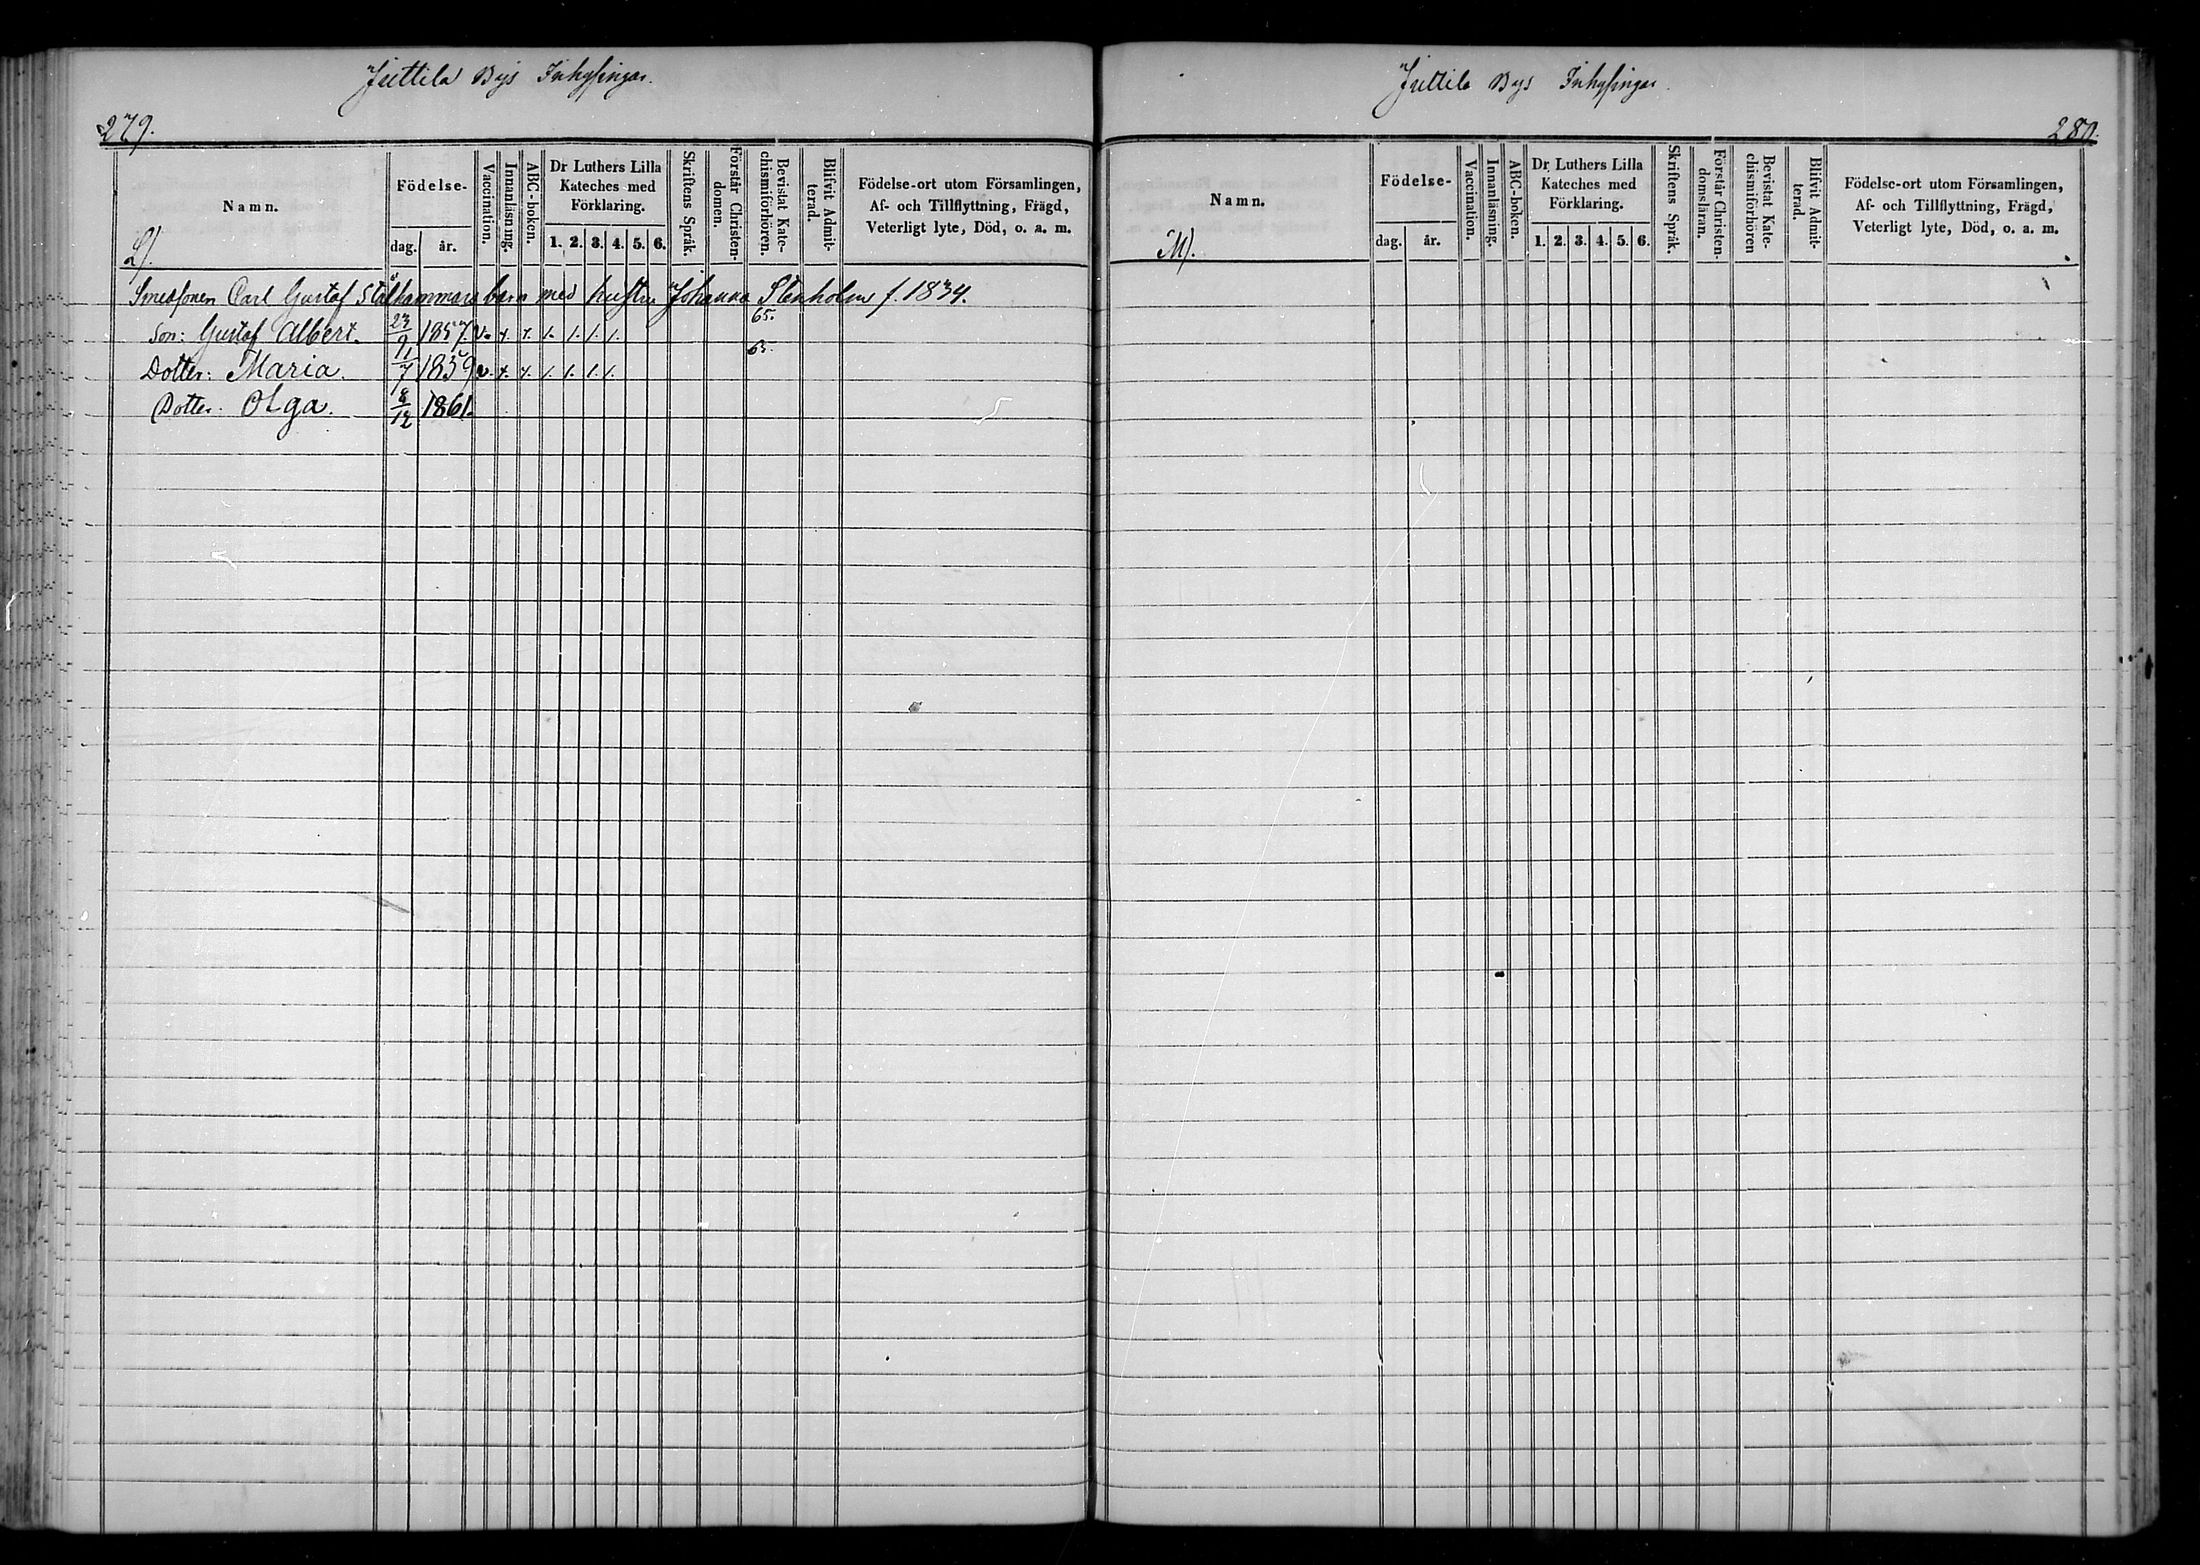 Juttila Bys Inhysingar.
279.
Namn.
Födelse-
dag.
år.
Vaccination.
Innanläsning.
ABC-boken.
Dr Luthers Lilla
Kateches med
Förklaring.
1. 2. 3. 4. 5. 6.
Skriftens Språk.
Förstår Christen-
domen.
Bevistat Kate-
chismiförhören.
Blifvit Admit-
terad.
Födelse-ort utom Församlingen,
Af- och Tillflyttning, Frägd,
Veterligt lyte, Död, o. a. m.
L).
Smedsonen Carl Gustaf Stålhammars barn med hustru Johanna Stenholm f. 1834.
Son: Gustaf Albert. 23/9 1857. v. 1. 1. 1. 1. 65.
Dotter: Maria. 1/7 1859 v. 1. 1. 1. 1. 65.
Dotter. Olga. 18/12 1861.
Juttila Bys Inhysingar.
280.
Namn.
Födelse-
dag.
år.
Vaccination.
Innanläsning.
ABC-boken.
Dr Luthers Lilla
Kateches med
Förklaring.
1. 2. 3. 4. 5. 6.
Skriftens Språk.
Förstår Christen-
domsläran.
Bevistat Kate-
chismiförhören
Blifvit Admit-
terad.
Födelse-ort utom Församlingen,
Af- och Tillflyttning, Frägd,
Veterligt lyte, Död, o. a. m.
M).